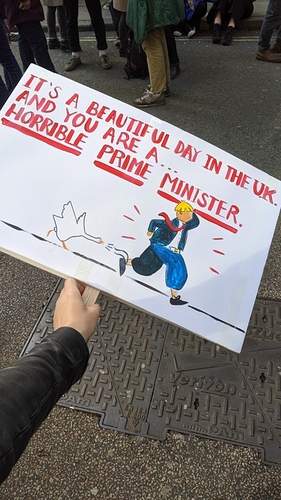 IT'S A BEAUTIFUL DAY IN THE UK.
AND YOU ARE A...
HORRIBLE PRIME MINISTER.